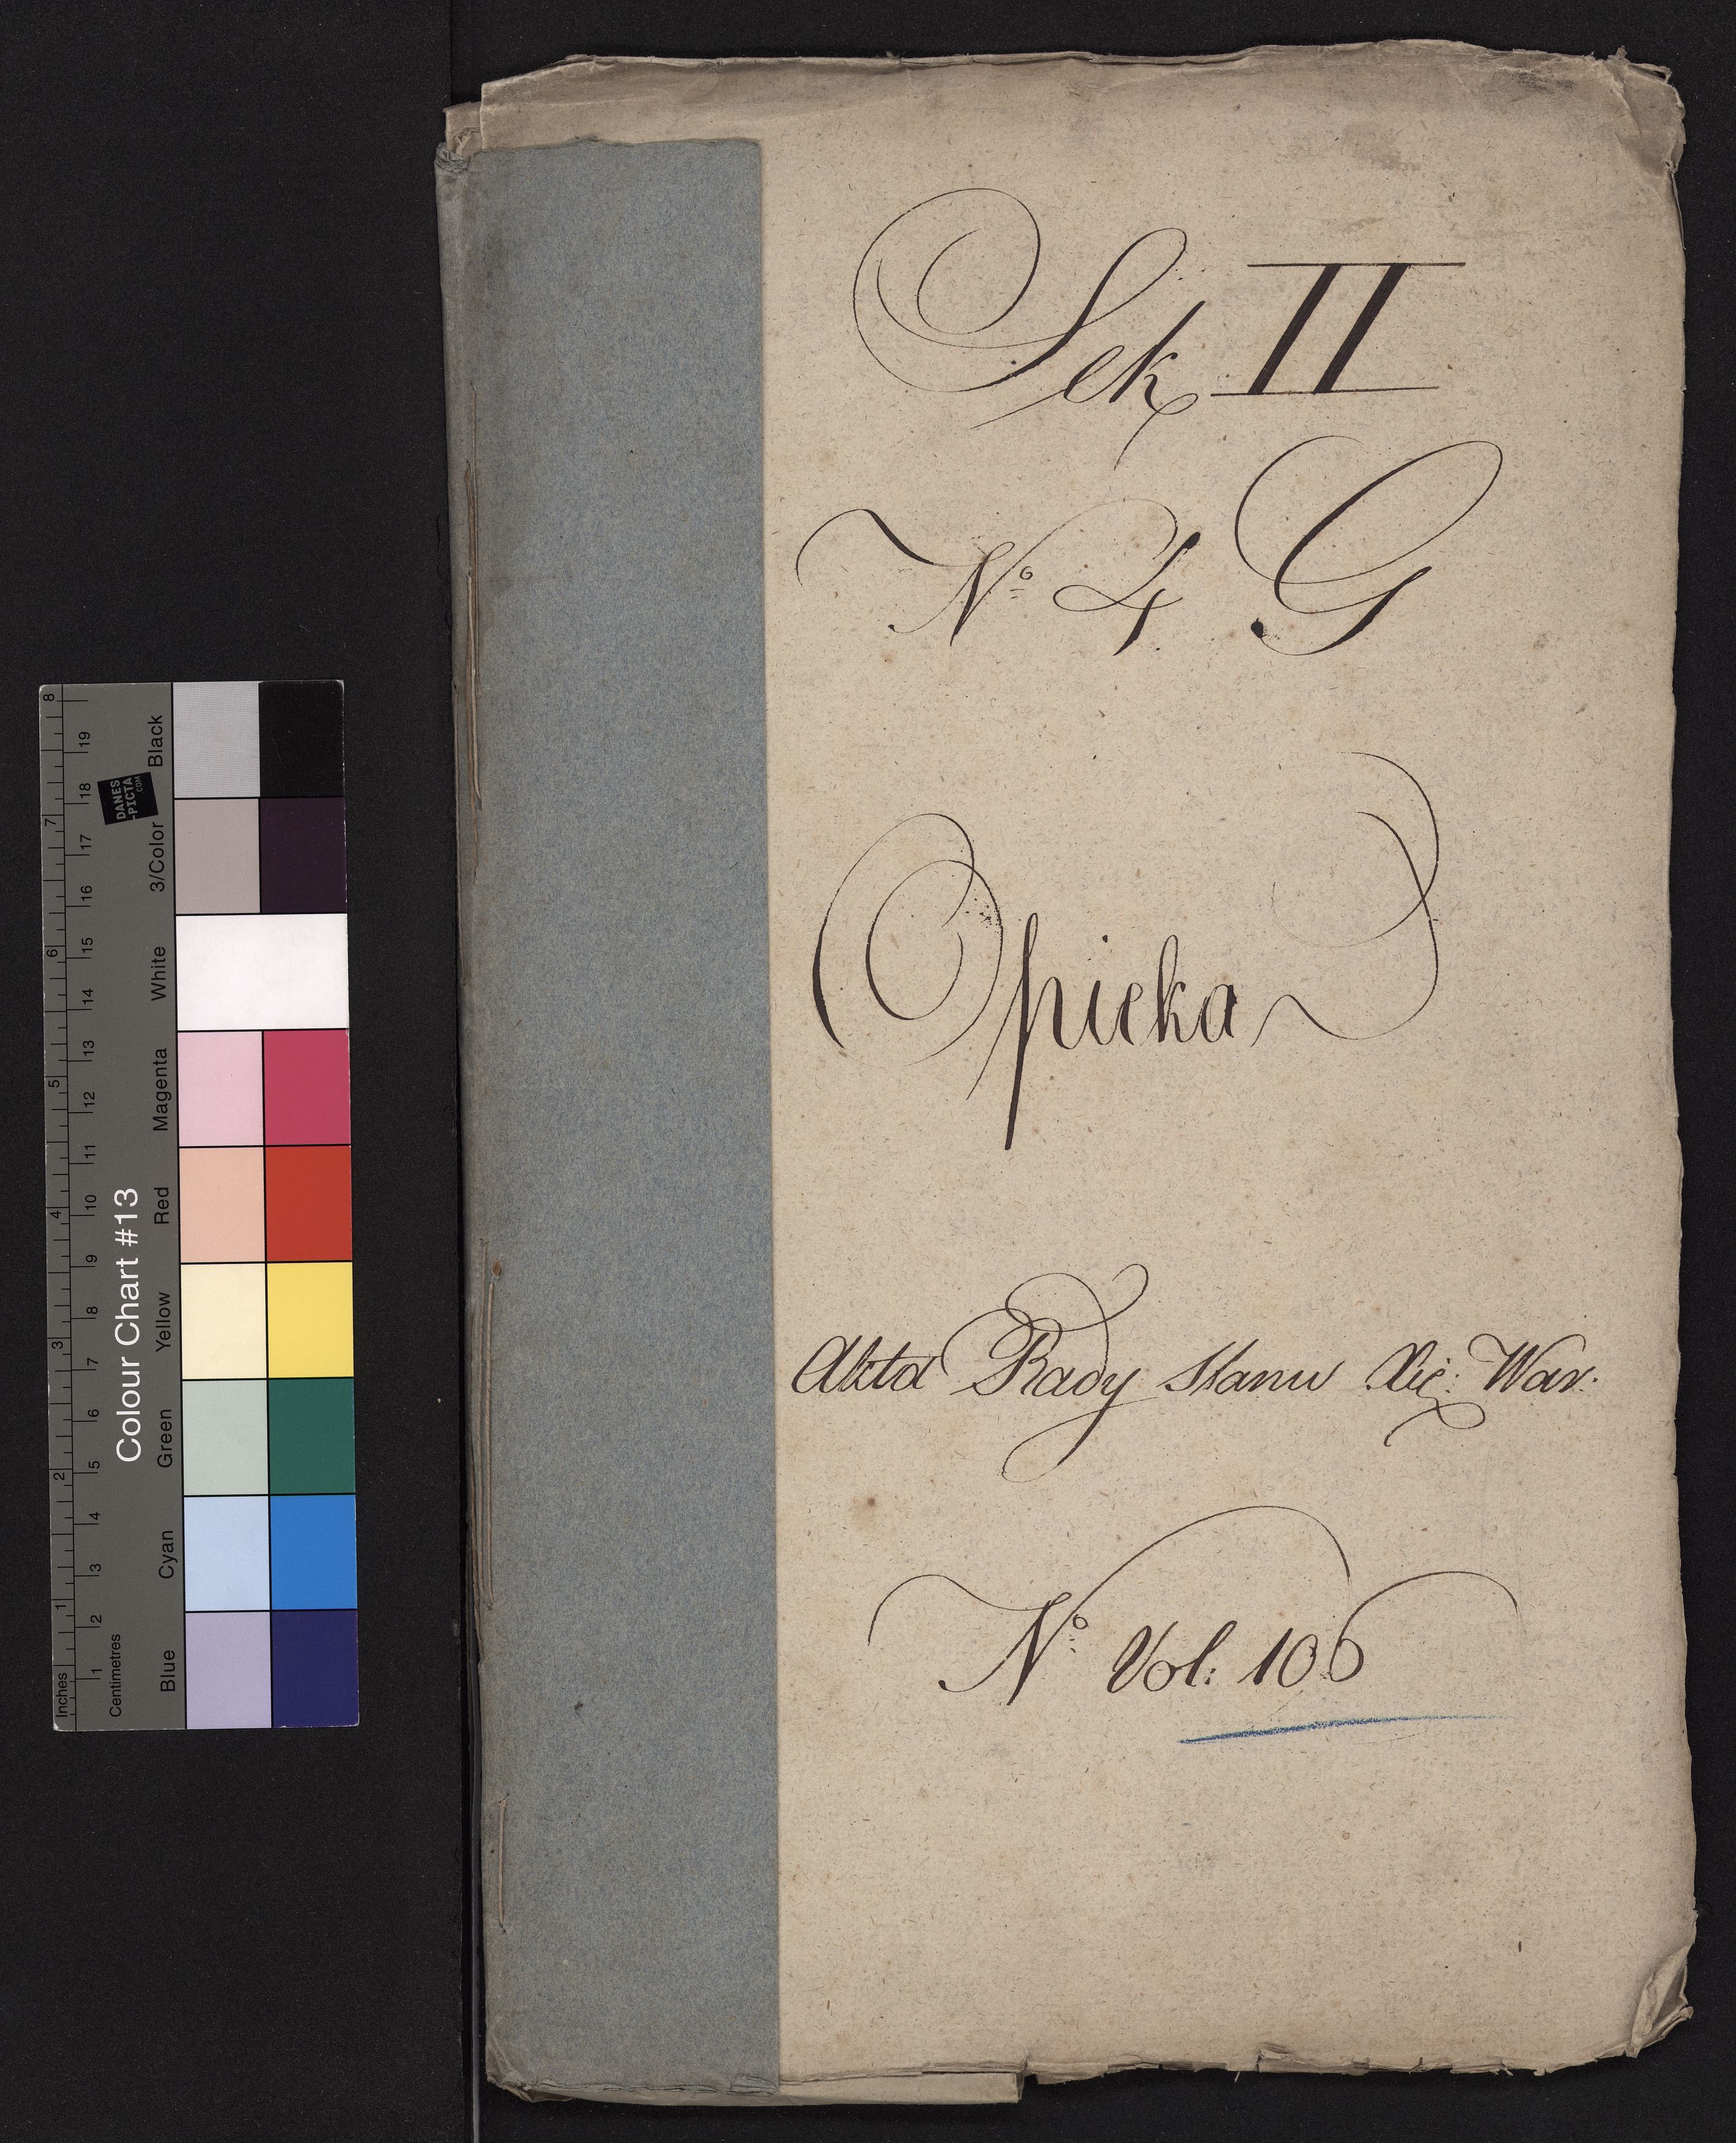 Sek II
Nº 4 G
Opieka
Akta Rady Stanu Xię: War:
Nº Vol: 106
Colour Chart #13
Blue Cyan Green Yellow Red Magenta White 3/Color Black
DANES
-PICTA
.COM
Inches 1 2 3 4 5 6 7 8
Centimetres 1 2 3 4 5 6 7 8 9 10 11 12 13 14 15 16 17 18 19